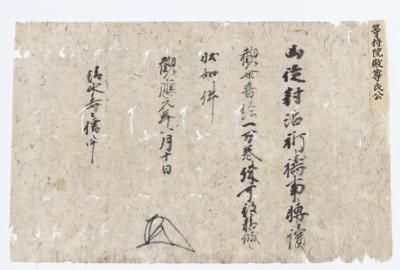 等持院殿尊氏公
凶徒對治祈禱事轉讀
觀世音經一百卷殊可致精誠
狀如件
觀應元年八月十日
清水寺々僧中